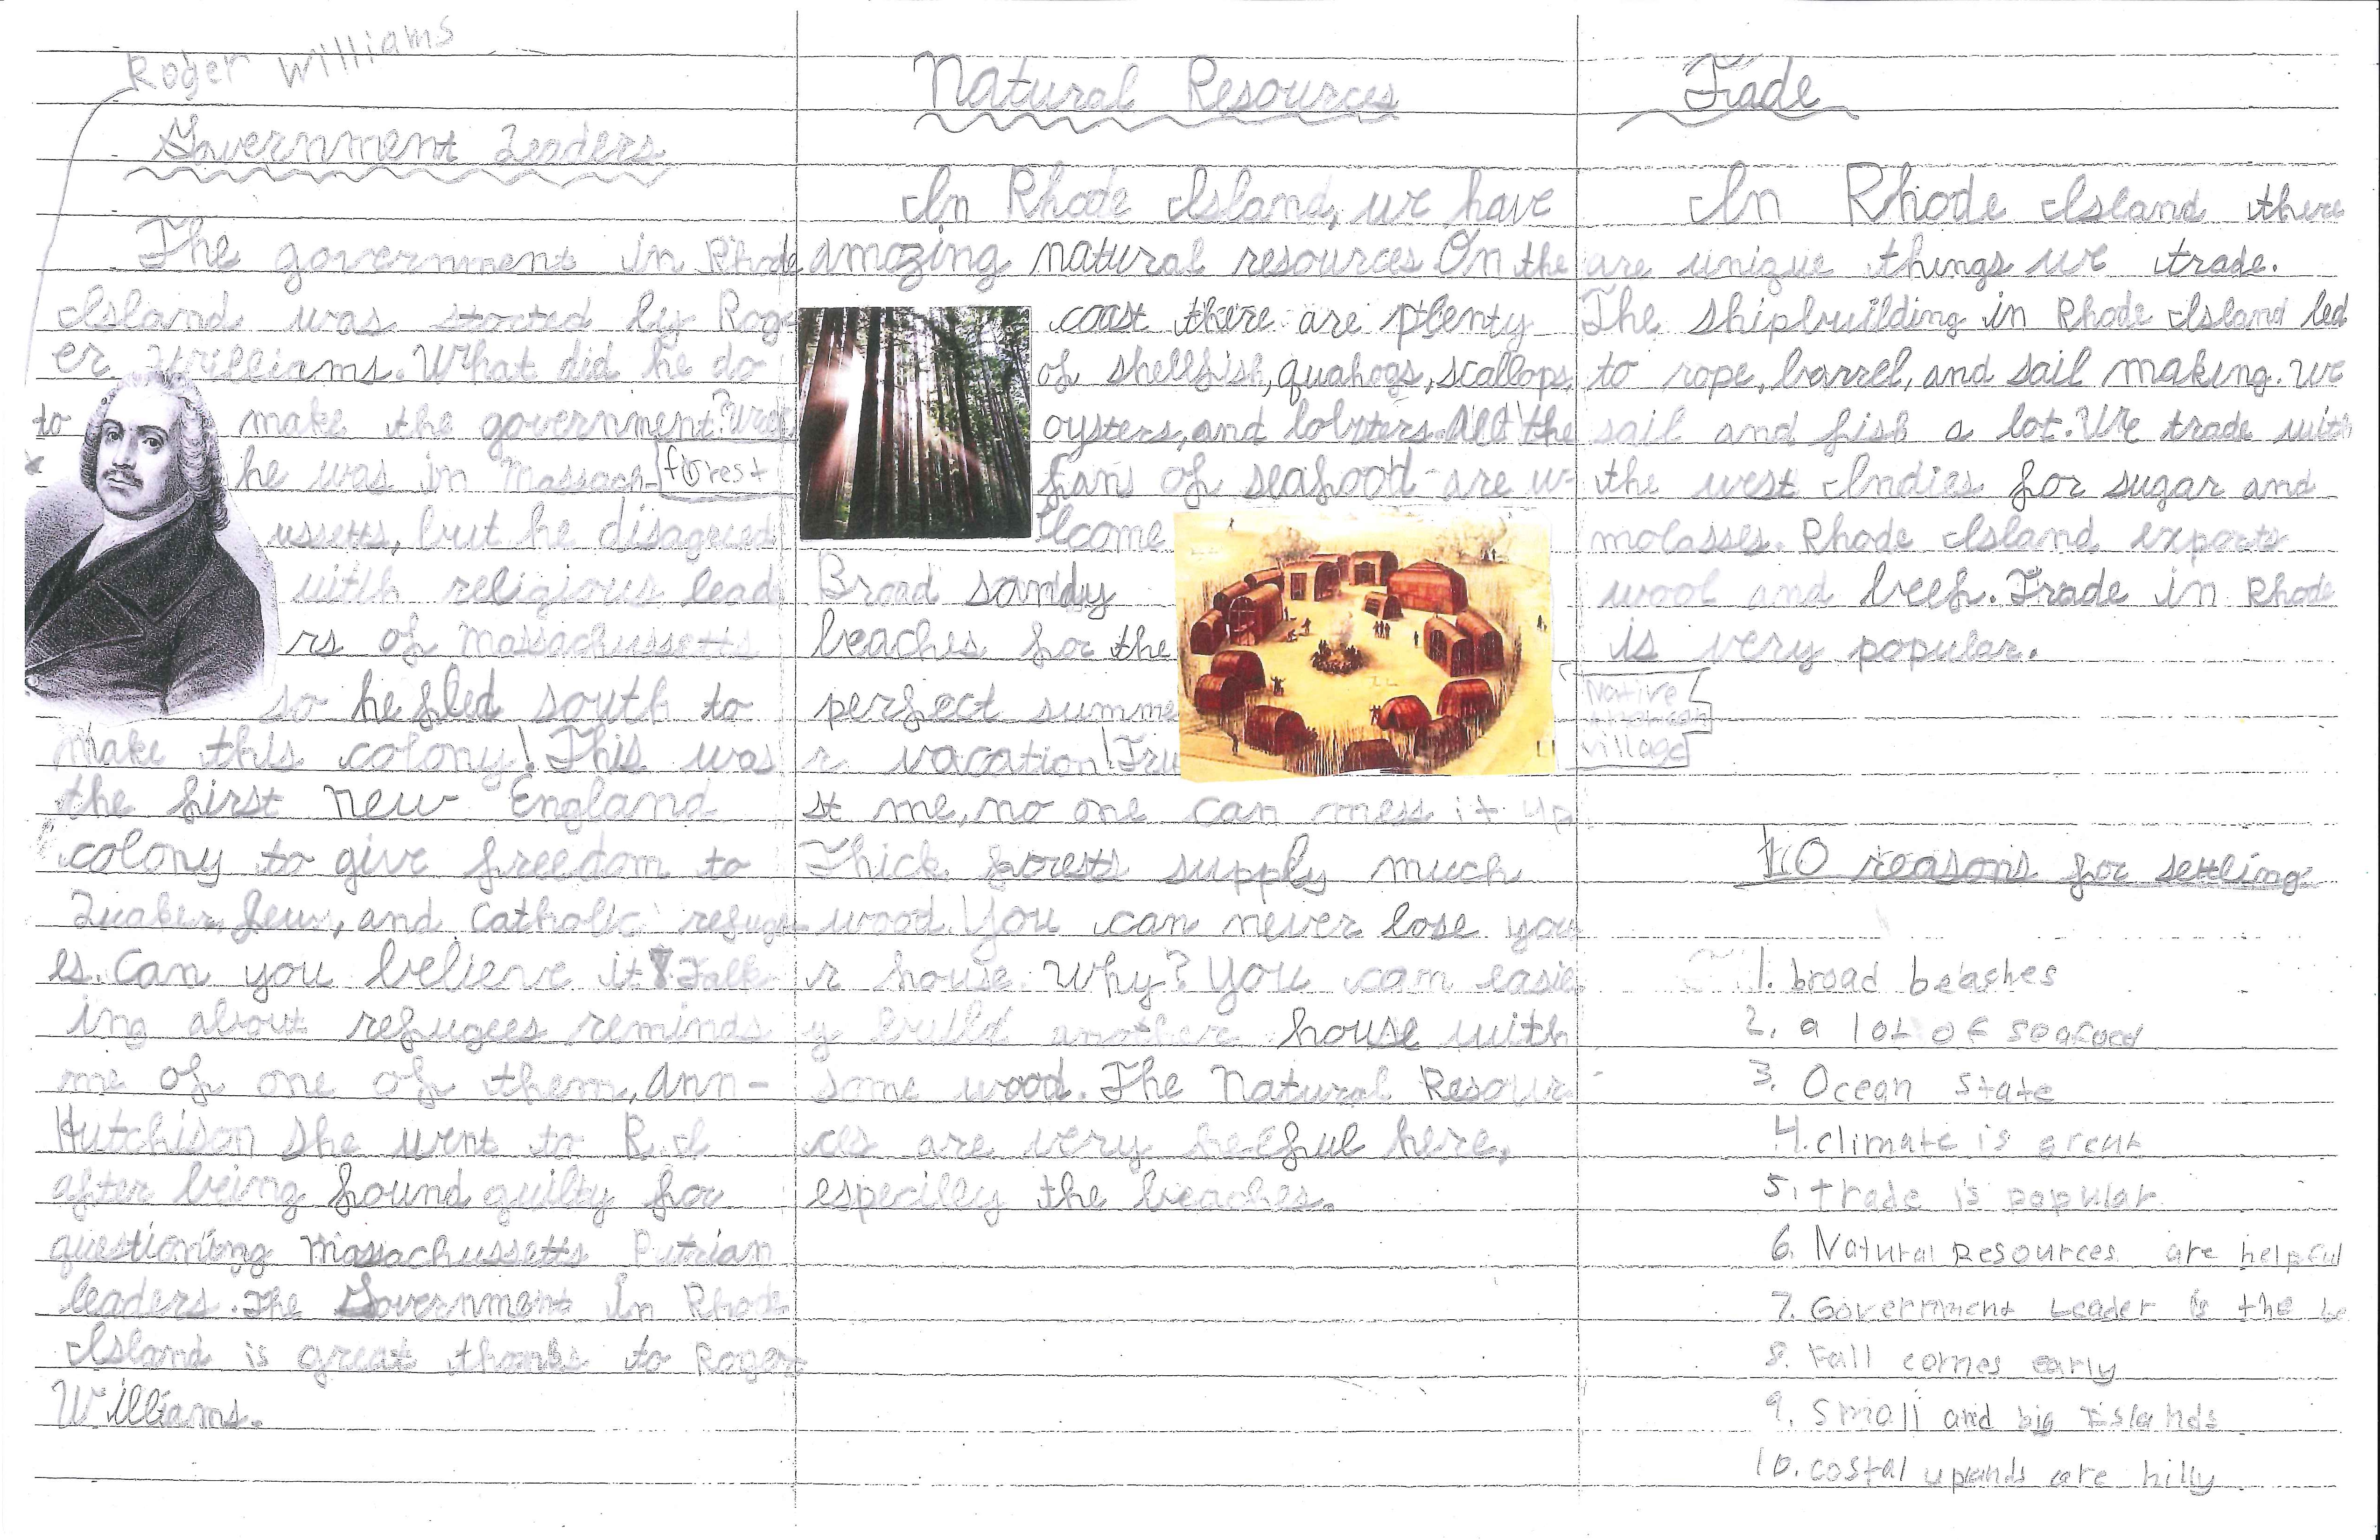 Roger Williams
Government Leaders
The government in Rhode
Island was started by Rog
er Williams. What did he do
to make the government?
he was in Massach-
forest
ussetts, but he disagreed
with religious lead
rs of Massachussetts
so he fled south to
make this colony! This was
the first new England
colony to give freedom to
Quaker, Jews, and Catholic refuge
es. Can you believe it? Talk
ing about refugees reminds
me of one of them, Ann-
Hutchison she went to R.I
after being found guilty for
questioning Massachussetts Putrian
leaders. The Government In Rhode
Island is great thanks to Roger
Williams.
Natural Resources
In Rhode Island, we have
amazing natural resources On the
coast there are plenty
of shellfish, quahogs, scallops,
oysters, and lobsters. All the
fans of seafood are w-
elcome
Broad sandy
beaches for the
perfect summe
r vacation! Tru
st me, no one can mess it up
Thick forests supply much
wood. You can never lose you
r house. Why? You can easil
y build another house with
some wood. The Natural Resour
ces are very helful here,
especilly the beaches.
Trade
In Rhode Island there
are unique things we trade.
The shipbuilding in Rhode Island led
to rope, barrel, and sail making. We
sail and fish a lot. We trade with
the west Indies for sugar and
molasses. Rhode Island exports
wool and beef. Trade in Rhode
is very popular.
Native
American
village
10 reasons for settling
1. broad beaches
2. a lot of seafood
3. Ocean State
4. climate is great
5. trade is popular
6. Natural Resources are helpful
7. Government Leader is the be
8. Fall comes early
9. Small and big Islands
10. costal uplands are hilly